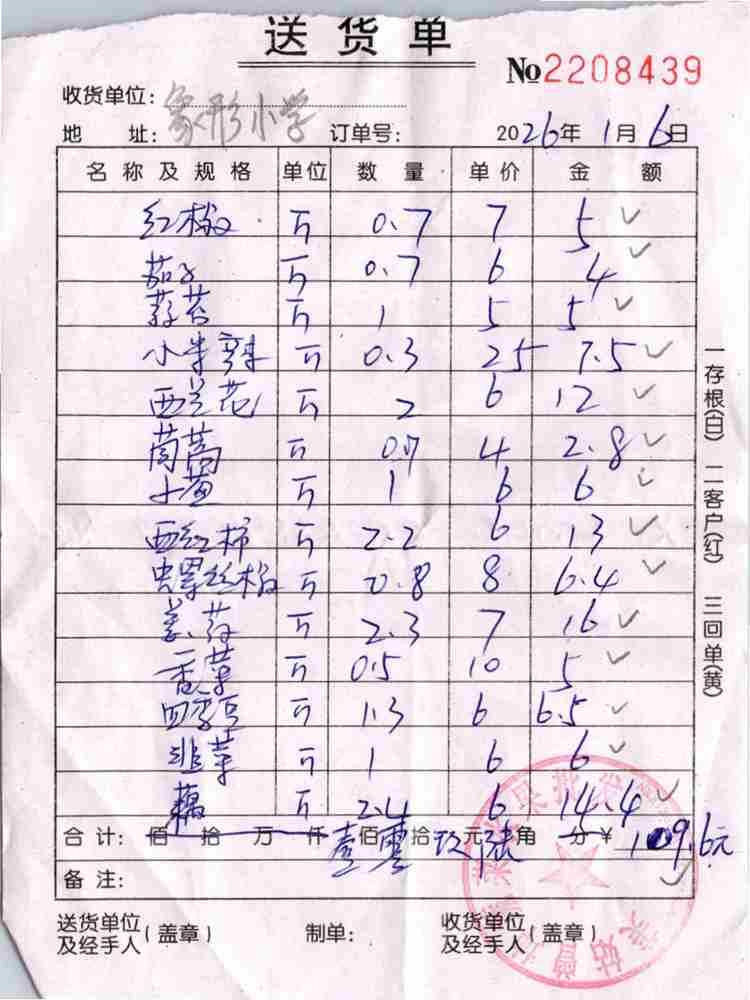 送货单
No2208439
收货单位：象形小学
地 址： 订单号： 2026年 1月 6日
名称及规格 单位 数量 单价 金额
红椒 斤 0.7 7 5
茄子 斤 0.7 6 4
蒜苔 斤 1 5 5
小米辣 斤 0.3 25 7.5
西兰花 斤 2 6 12
茼蒿 斤 0.7 4 2.8
斤 1 6 6
西红柿 斤 2.2 6 13
螺丝椒 斤 0.8 8 6.4
姜蒜 斤 2.3 7 16
香菜 斤 0.5 10 5
四季豆 斤 1.3 6 6.5
韭菜 斤 1 6 6
藕 斤 2.4 6 14.4
合计： 佰 拾 万 仟 壹佰零拾玖元陆角 分 ¥ 109.6元
备注：
送货单位及经手人（盖章） 制单： 收货单位及经手人（盖章）
一存根(白) 二客户(红) 三回单(黄)